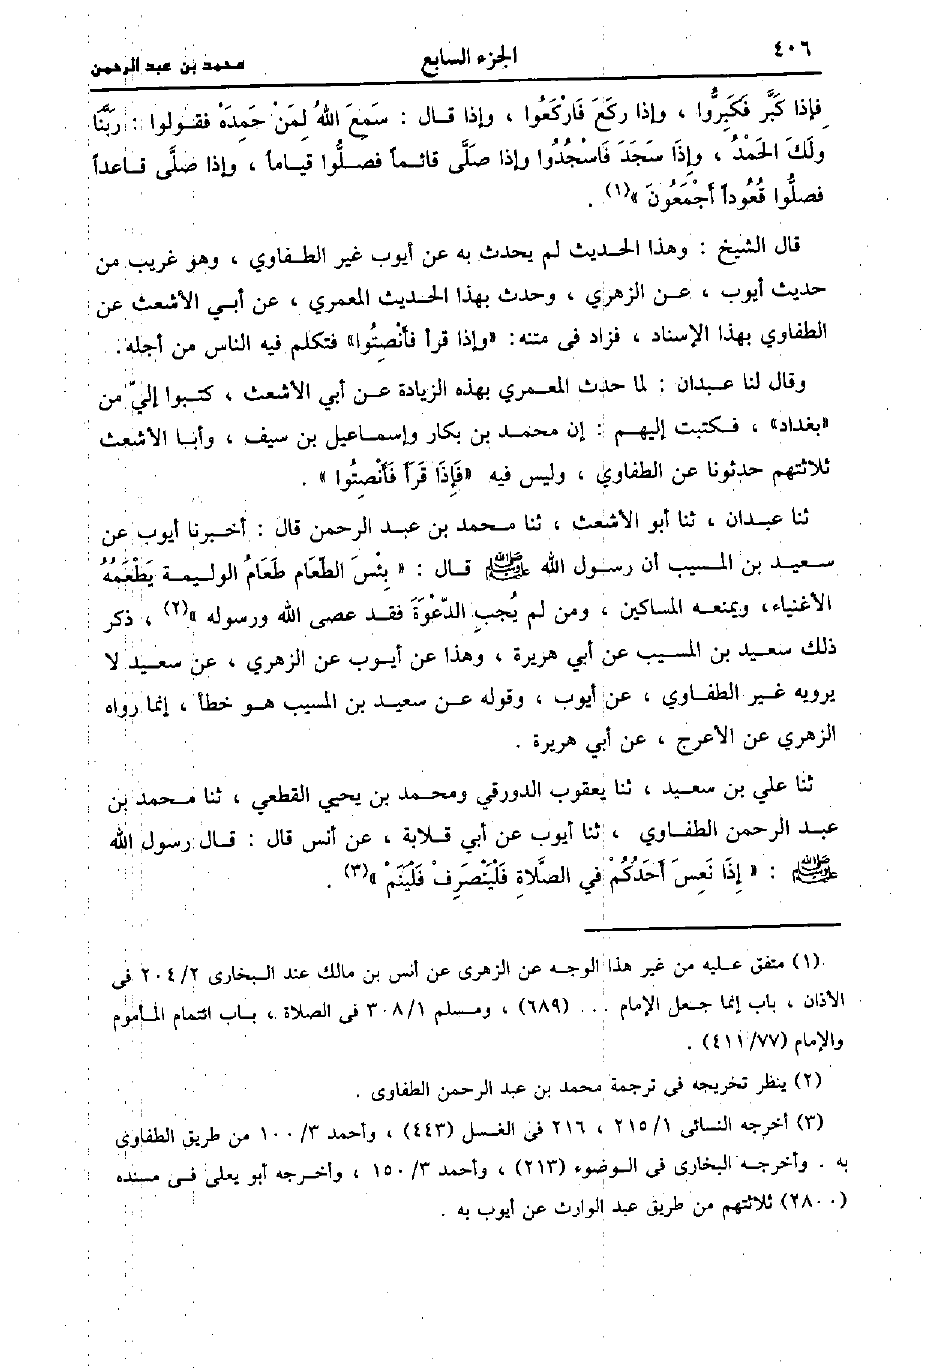 ٤٠٦ الجزء السابع محمد بن عبد الرحمن
فإذا كَبَّر فَكَبِّروُا ، وإذا ركَعَ فَارْكَعُوا ، وإذا قـال : سَمِعَ اللهُ لِمَنْ حَمِدَهْ فقـولوا : ربَّنَا
ولَكَ الحَمْدُ ، وإذَا سَجَدَ فَاسْجُدُوا وإذا صَلَّى قائـماً فصلُّوا قيـاماً ، وإذا صلَّى قـاعداً
فصلُّوا قُعُوداً أجْمَعُونَ »(١) .
قال الشيخ : وهذا الحديث لم يحدث به عن أيوب غير الطفاوي ، وهو غريب من
حديث أيوب ، عـن الزهري ، وحدث بهذا الحـديث المعمري ، عن أبـي الأشعث عن
الطفاوي بهذا الإسناد ، فزاد فى متنه: «وإذا قرأ فأنْصِتُوا» فتكلم فيه الناس من أجله.
وقال لنا عـبدان : لما حدث المعمري بهذه الزيادة عـن أبي الأشعث ، كتبوا إليّ من
«بغداد» ، فـكتبت إليهـم : إن محمـد بن بكار وإسـماعيل بن سيف ، وأبـا الأشعث
ثلاثتهم حدثونا عن الطفاوي ، وليس فيه «فَإذَا قَرَأ فَأنْصِتُوا » .
ثنا عبـدان ، ثنا أبو الأشعث ، ثنا محمد بن عبد الرحمن قال : أخبرنا أيوب عن
سعيـد بن المسيب أن رسـول الله ﷺ قـال : « بِئْسَ الطَّعَامِ طَعَامُ الوليـمة يَطْعَمُهُ
الأغنياء، ويمنعـه المساكين ، ومن لم يُجِبِ الدَّعْوَةَ فقـد عصى الله ورسوله »(٢) ، ذكر
ذلك سعيـد بن المسيب عن أبي هريرة ، وهذا عن أيـوب عن الزهري ، عن سعيـد لا
يرويه غيـر الطفـاوي ، عن أيوب ، وقوله عـن سعيـد بن المسيب هـو خطأ ، إنما رواه
الزهري عن الأعرج ، عن أبي هريرة .
ثنا علي بن سعيـد ، ثنا يعقوب الدورقي ومحمـد بن يحيي القطعي ، ثنا محمد بن
عبـد الرحمن الطفـاوي ، ثنا أيوب عن أبي قـلابة ، عن أنس قال : قـال رسول الله
ﷺ : « إذَا نَعِسَ أحَدُكُمْ في الصَّلاةِ فَلْيَنْصَرِفْ فَلْيَنَمْ »(٣) .
(١) متفق عليه من غير هذا الوجه عن الزهرى عن أنس بن مالك عند البخارى ٢٠٤/٢ فى
الأذان ، باب إنما جعل الإمام ... (٦٨٩) ، ومسلم ٣٠٨/١ فى الصلاة ، باب ائتمام المأموم
والإمام (٤١١/٧٧) .
(٢) ينظر تخريجه فى ترجمة محمد بن عبد الرحمن الطفاوى .
(٣) أخرجه النسائى ٢١٥/١ ، ٢١٦ فى الغسل (٤٤٣) ، وأحمد ١٠٠/٣ من طريق الطفاوى
به . وأخرجـه البخارى فى الوضوء (٢١٣) ، وأحمد ١٥٠/٣ ، وأخرجه أبو يعلى فى مسنده
(٢٨٠٠) ثلاثتهم من طريق عبد الوارث عن أيوب به .